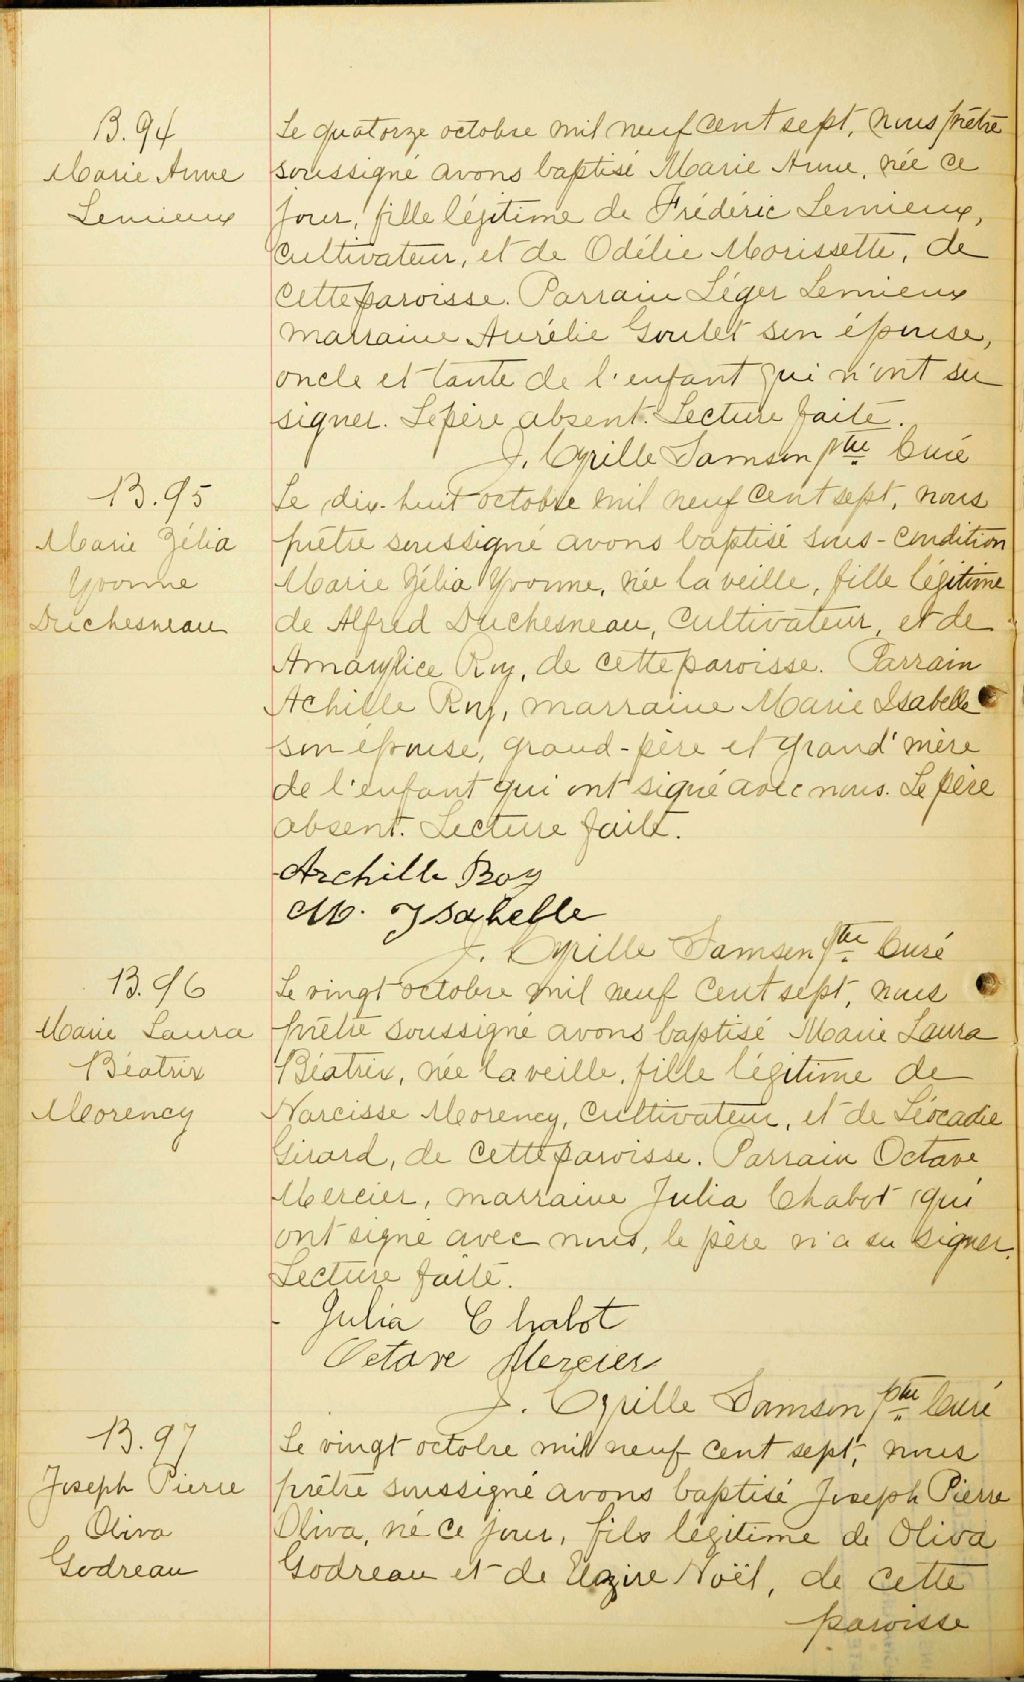 B.94
Marie Anne
Lemieux
Le quatorze octobre mil neuf cent sept, nous prêtre
soussigné avons baptisé Marie Anne, née ce
jour, fille légitime de Frédéric Lemieux,
cultivateur, et de Odélie Morissette, de
cette paroisse. Parrain Léger Lemieux
marraine Aurélie Goulet son épouse,
oncle et tante de l'enfant qui n'ont su
signer. Le père absent. Lecture faite.
J. Cyrille Samson ptre Curé
B.95
Marie Zélia
Yvonne
Duchesneau
Le dix-huit octobre mil neuf cent sept, nous
prêtre soussigné avons baptisé sous-condition
Marie Zélia Yvonne, née la veille, fille légitime
de Alfred Duchesneau, cultivateur, et de
Roy, de cette paroisse. Parrain
Achille Roy, marraine Marie Isabelle
son épouse, grand-père et grand'mère
de l'enfant qui ont signé avec nous. Le père
absent. Lecture faite.
Archille Roy
M. Isabelle
J. Cyrille Samson ptre Curé
B.96
Marie Laura
Béatrix
Morency
Le vingt octobre mil neuf cent sept, nous
prêtre soussigné avons baptisé Marie Laura
Béatrix, née la veille, fille légitime de
Narcisse Morency, cultivateur, et de Léocadie
Girard, de cette paroisse. Parrain Octave
Mercier, marraine Julia Chabot qui
ont signé avec nous, le père n'a su signer.
Lecture faite.
Julia Chabot
Octave Mercier
J. Cyrille Samson ptre Curé
B.97
Joseph Pierre
Oliva
Godreau
Le vingt octobre mil neuf cent sept, nous
prêtre soussigné avons baptisé Joseph Pierre
Oliva, né ce jour, fils légitime de Oliva
Godreau et de Noël, de cette
paroisse